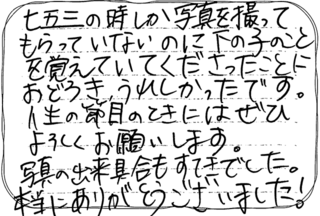 七五三の時しか写真を撮って
もらっていないのに下の子のこと
を覚えていてくださったことに
おどろき、うれしかったです。
人生の節目のときにはぜひ
よろしくお願いします。
写真の出来具合もすてきでした。
本当にありがとうございました!